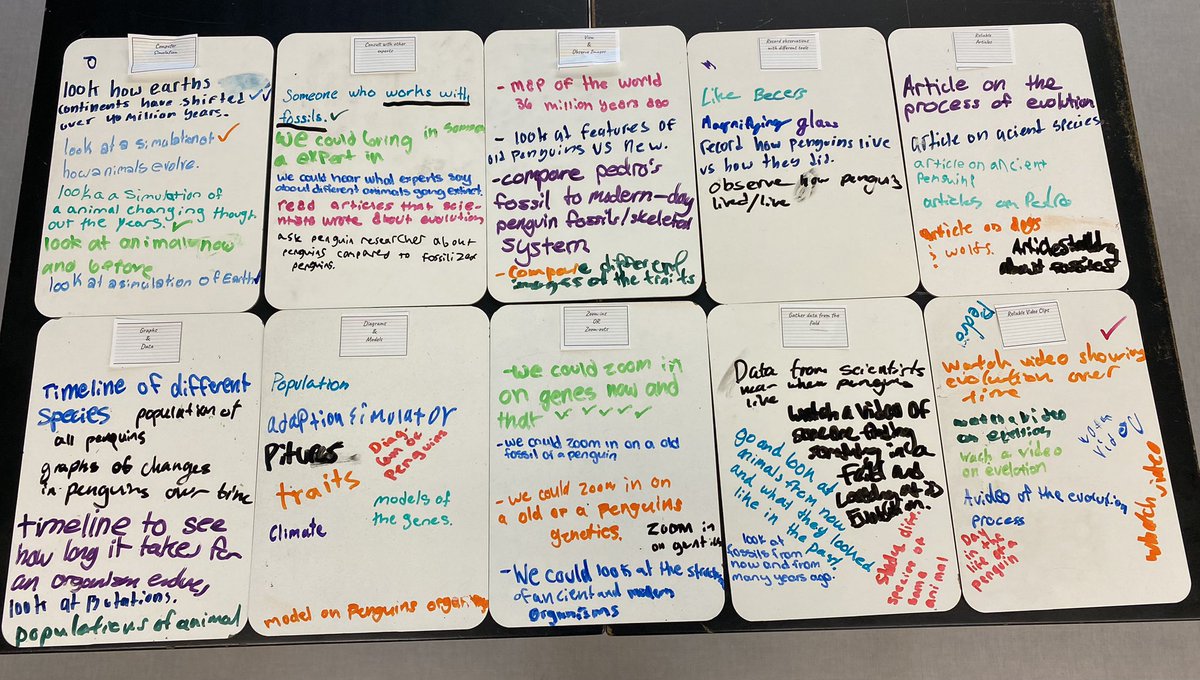 Computer
Simulation
look how earths
continents have shifted
over 40 million years.
look at a simulation of
how animals evolve.
look a a simulation of
a animal changing though
out the years.
look at animal now
and before
look at a simulation of Earth
Consult with other
experts
Someone who works with
fossils.
we could bring in someone
a expert in
we could hear what experts say
about different animals going extinct.
read articles that scie-
ntists wrote about evolution
ask penguin researcher about
penguins compared to fossilized
penguins.
View
&
Observe Images
- map of the world
36 million years ago
- look at features of
old penguins vs new.
- compare pedro's
fossil to modern-day
penguin fossils/skeletal
system
- compare different
images of the traits
Record observations
with different tools
Like Becers
Magnifying glass
record how penguins live
vs how they did.
observe how penguins
lived/live
Reliable
Articles
Article on the
process of evolution
article on acient species.
article on ancient
Penguins
articles on Pedro
article on dogs
& wolfs.
Articles talking
about fossiles
Graphs
&
Data
Timeline of different
species
population of
all penguins
graphs of changes
in penguins over time
timeline to see
how long it take for
an organism evolve,
look at mutations.
populations of animal
Diagrams
&
Models
Population
adaption simulator
Pitures
Diag
ram be
Penguins
traits
models of
the genes.
Climate
model on Penguins
Zoom-ins
OR
Zoom-outs
- we could zoom in
on genes now and
that
- we could zoom in on a old
fossil of a penguin
- we could zoom in on
a old or a penguins
genetics.
zoom in
on
- We could look at the
of ancient and modern
organisms
Gather data from the
Field
Data from scientists
when penguins
live
watch a video of
someone finding
something in a
field and
looking at it
Evolution.
go and look at
animals from now
and what they looked
like in the past.
look at
fossils from
now and from
many years ago.
study
species of
same
animal
Reliable Video Clips
Pedro
watch video showing
evolution over
time
watch a video
on
wach a video
on evelotion
watch
video
a video of the evolution
process
Day
in the
life of a
Penguin
whatch video